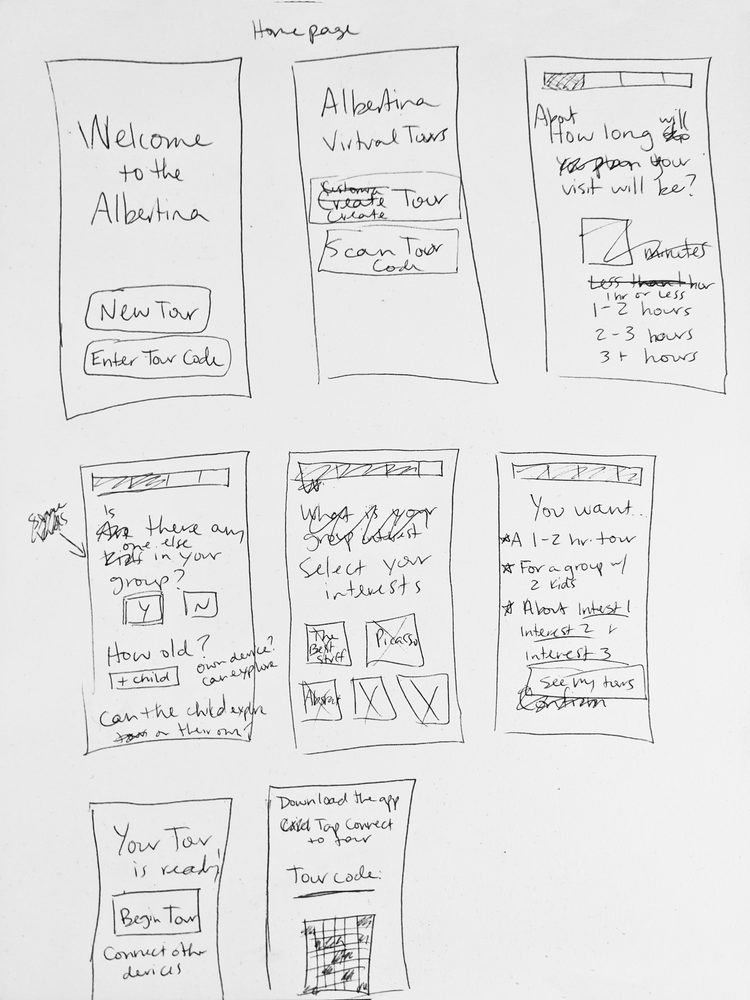 Home page
Welcome
to the
Albertina
New Tour
Enter Tour Code
Albertina
Virtual Tours
Create Tour
Create
Scan Tour
Code
About will
How long
your
visit will be?
minutes
Less than 1 hour
1 hr or Less
1-2 hours
2-3 hours
3+ hours
Is
Are there any
one else
kids in your
group?
Y N
How old?
+ child
own device?
can explore
Can the child explore
on their own?
What is your
group interest
Select your
interests
The
Best
Stuff
Picasso
Abstract
You want...
A 1-2 hr. tour
For a group w/
2 kids
About Interest 1
Interest 2 +
interest 3
See my tours
Confirm
Your Tour
is ready!
Begin Tour
Connect other
devices
Download the app
Tap Connect
to tour
Tour code: